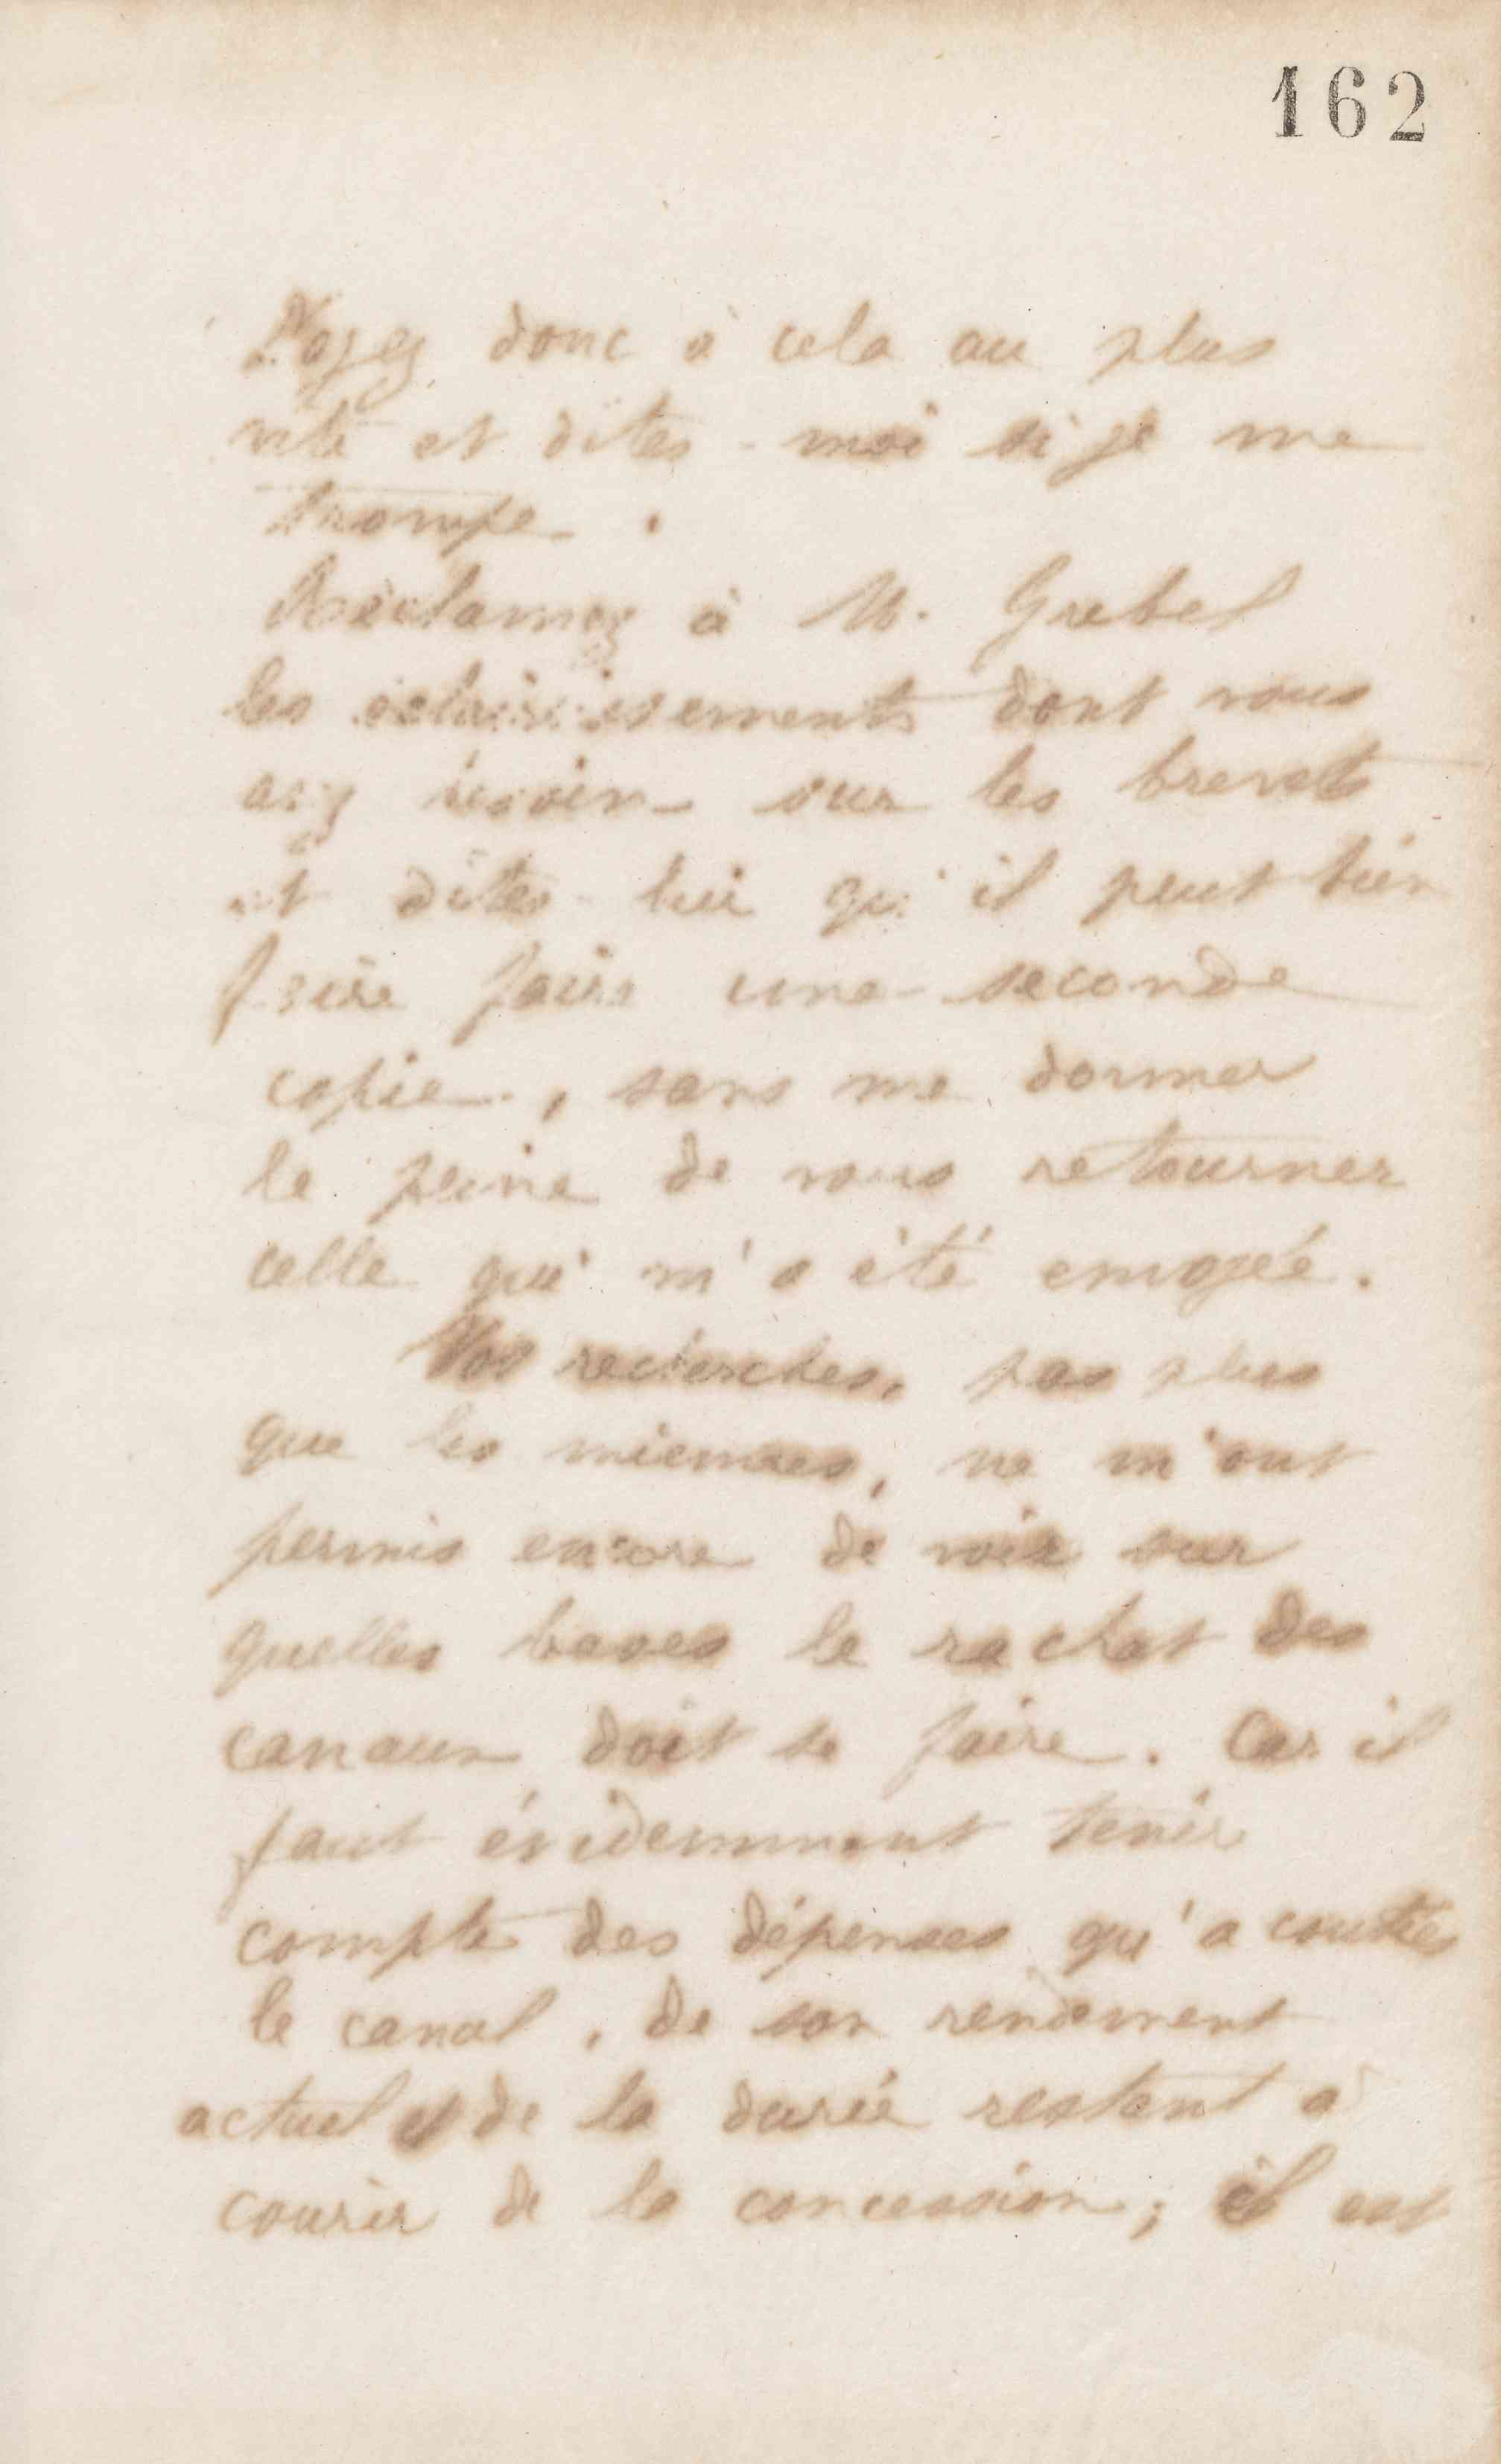 162
Voyez donc à cela au plus
vite et dites-moi si je me
trompe.
Réclamez à M. Grebel
les éclaircissements dont vous
avez besoin sur les brevets
et dites-lui qu'il peut bien
faire faire une seconde
copie, sans me donner
la peine de vous retourner
celle qui m'a été envoyée.
Vos recherches, pas plus
que les miennes, ne m'ont
permis encore de voir sur
quelles bases le rachat des
canaux doit se faire. Car il
faut évidemment tenir
compte des dépenses qu'a coutées
le canal, de son rendement
actuel et de la durée restant à
courir de la concession; il est